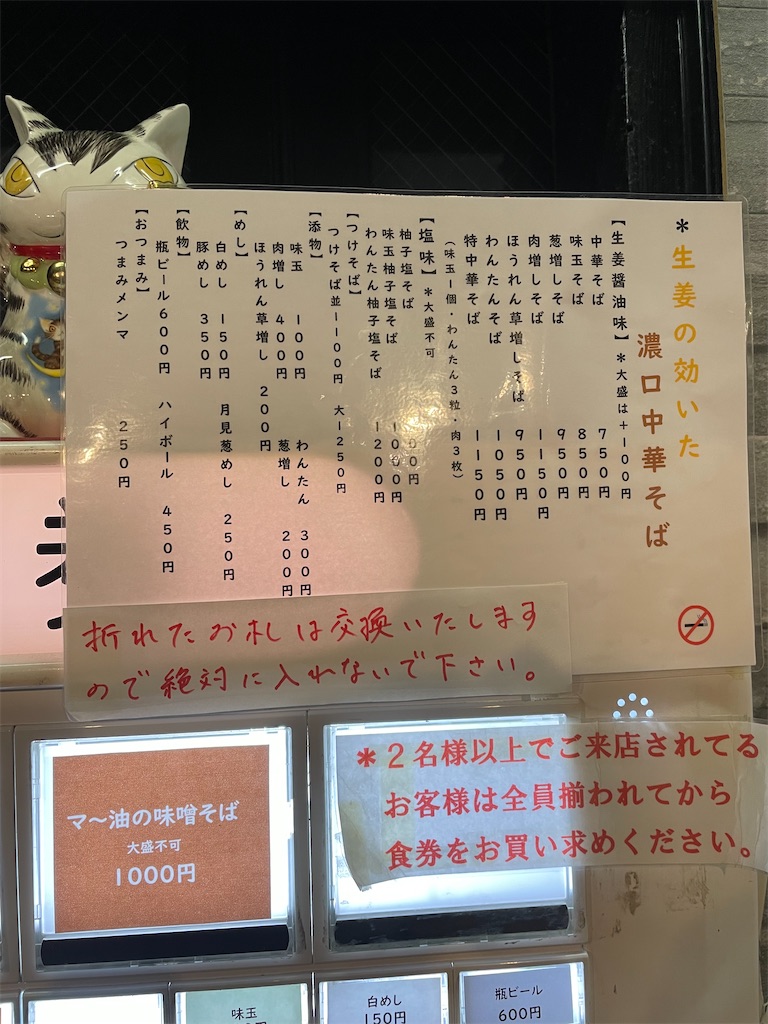 *生姜の効いた
濃口中華そば
【生姜醤油味】*大盛は+100円
中華そば 750円
味玉そば 850円
葱増しそば 950円
肉増しそば 1150円
ほうれん草増しそば 950円
わんたんそば 1050円
特中華そば 1150円
(味玉1個・わんたん3粒・肉3枚)
【塩味】*大盛不可
柚子塩そば 00円
味玉柚子塩そば 1000円
わんたん柚子塩そば 1200円
【つけそば】
つけそば並1100円 大1250円
【添物】
味玉 100円 わんたん 300円
肉増し 400円 葱増し 200円
ほうれん草増し 200円
【めし】
白めし 150円 月見葱めし 250円
豚めし 350円
【飲物】
瓶ビール600円 ハイボール 450円
【おつまみ】
つまみメンマ 250円
折れたお札は交換いたします
ので絶対に入れないで下さい。
*2名様以上でご来店されてる
お客様は全員揃われてから
食券をお買い求めください。
マ〜油の味噌そば
大盛不可
1000円
味玉
白めし
150円
瓶ビール
600円